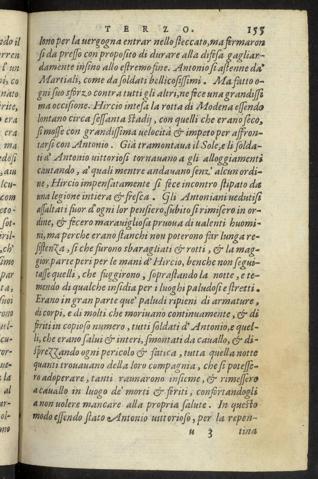 TERZO. 155
lono per la uergogna entrar nello steccato, ma fermaron
si da presso con proposito di durare alla difesa gagliar-
damente insino allo estremo fine. Antonio si astenne da'
Martiali, come da soldati bellicosissimi. Ma fatto o-
gni suo sforzo contra tutti gli altri, ne fece una grandissi
ma occisione. Hircio intesa la rotta di Modena essendo
lontano circa sessanta stadij, con quelli che erano seco,
si mosse con grandissima uelocità & impeto per affron-
tarsi con Antonio. Già tramontaua il Sole, e li solda-
ti d'Antonio uittoriosi tornauano a gli alloggiamenti
cantando, a' quali mentre andauano senz' alcun ordi-
ne, Hircio impensatamente si fece incontro stipato da
una legione intiera & fresca. Gli Antoniani uedutisi
assaltati fuor d'ogni lor pensiero, subito si rimisero in or-
dine, & fecero marauigliosa pruoua di ualenti huomi-
ni, ma perche erano stanchi non poterono far lunga re-
sistenza, si che furono sbaragliati & rotti, & la mag-
gior parte perì per le mani d'Hircio, benche non segui-
tasse quelli, che fuggirono, soprastando la notte, e te-
mendo di qualche insidia per i luoghi paludosi e stretti.
Erano in gran parte que' paludi ripieni di armature,
di corpi, e di molti che moriuano continuamente, & di
feriti in copioso numero, tutti soldati d'Antonio, e quel-
li, che erano salui & interi, smontati da cauallo, & di-
sprezzando ogni pericolo & fatica, tutta quella notte
quanti trouauano della loro compagnia, che si potesse-
ro adoperare, tanti raunarono insieme, & rimessero
a cauallo in luogo de' morti & feriti, confortandogli
a non uolere mancare alla propria salute. In questo
modo essendo stato Antonio uittorioso, per la repen-
u 3 tina